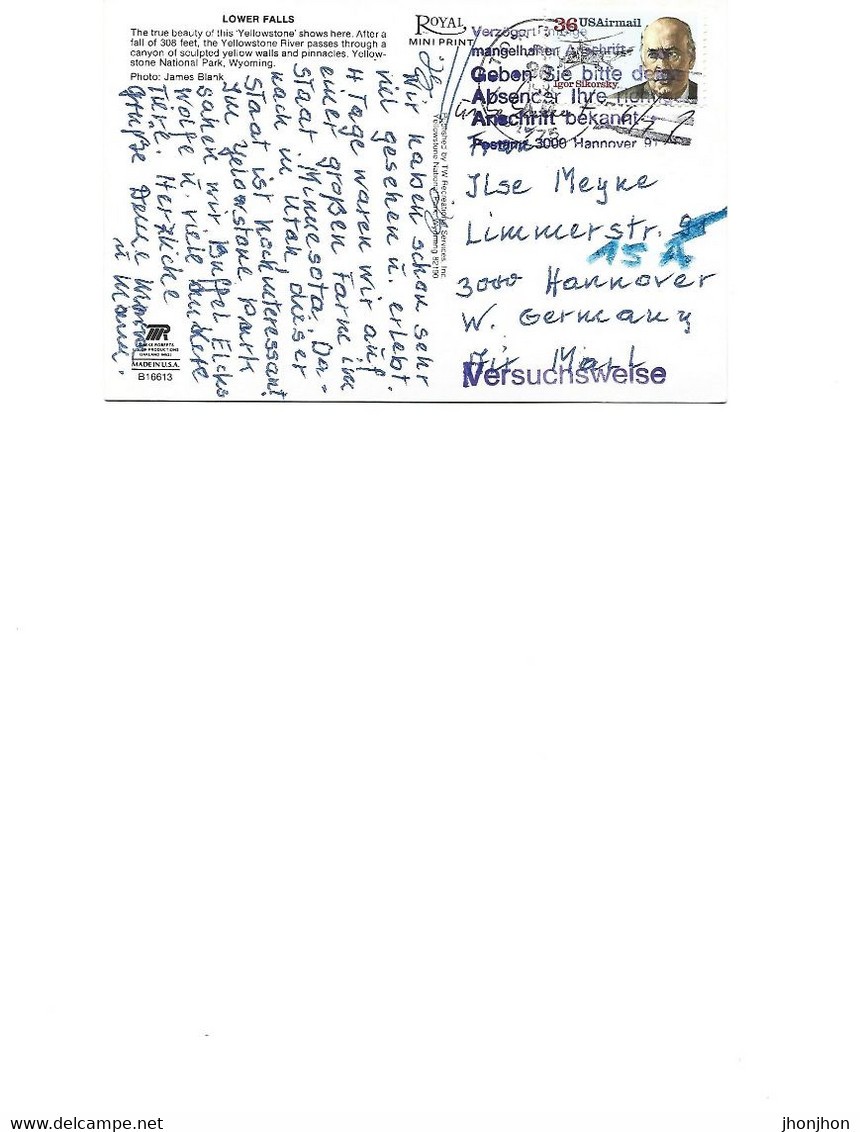 LOWER FALLS
The true beauty of this 'Yellowstone' shows here. After a
fall of 308 feet, the Yellowstone River passes through a
canyon of sculpted yellow walls and pinnacles. Yellow-
stone National Park, Wyoming.
Photo: James Blank
ROYAL
MINI PRINT
36 USAirmail
Igor Sikorsky
Verzögert infolge
mangelhafter Anschrift
Geben Sie bitte dem
Absender Ihre
Anschrift bekannt
Postamt 3000 Hannover 91
1975
Published by TW Recreational Services Inc.
Yellowstone National Park, Wyoming 82190
Wir haben schon sehr
viel gesehen u. erlebt.
4 Tage waren wir auf
einer großen Farm im
Staat Minnesota. Da-
nach in Utah dieser
Staat ist hochinteressant
Im Yelowstone Park
sahen wir Büffel Elcks
Wölfe u. viele andere
Tiere. Herzliche
Grüße Deine
u Mann.
Frau
Ilse Meyke
Limmerstr.
15 A
3000 Hannover
W. Germany
Air Mail
Versuchsweise
MADE IN U.S.A.
B16613
jhonjhon